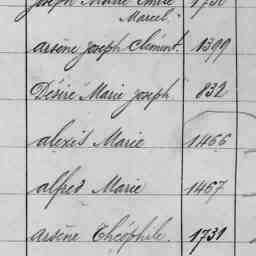 Joseph Marie Emile 1730
Marcel.
arsène Joseph Clément. 1399
Désiré Marie Joseph 832
alexis Marie 1466
alfred Marie 1467
arsène Théophile. 1731